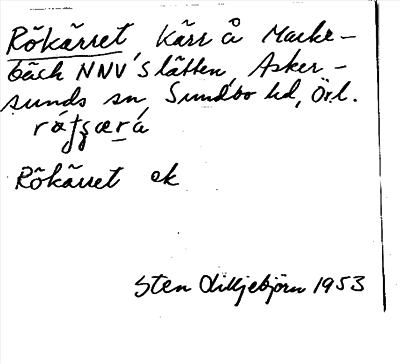 Rõkãrret, Kãrr å Marke-
bäck NNV Slätten, Asker-
sunds sn, Sundbo hd, Örl.
Rõkãrret ek
Sten Lilljebjörn 1953